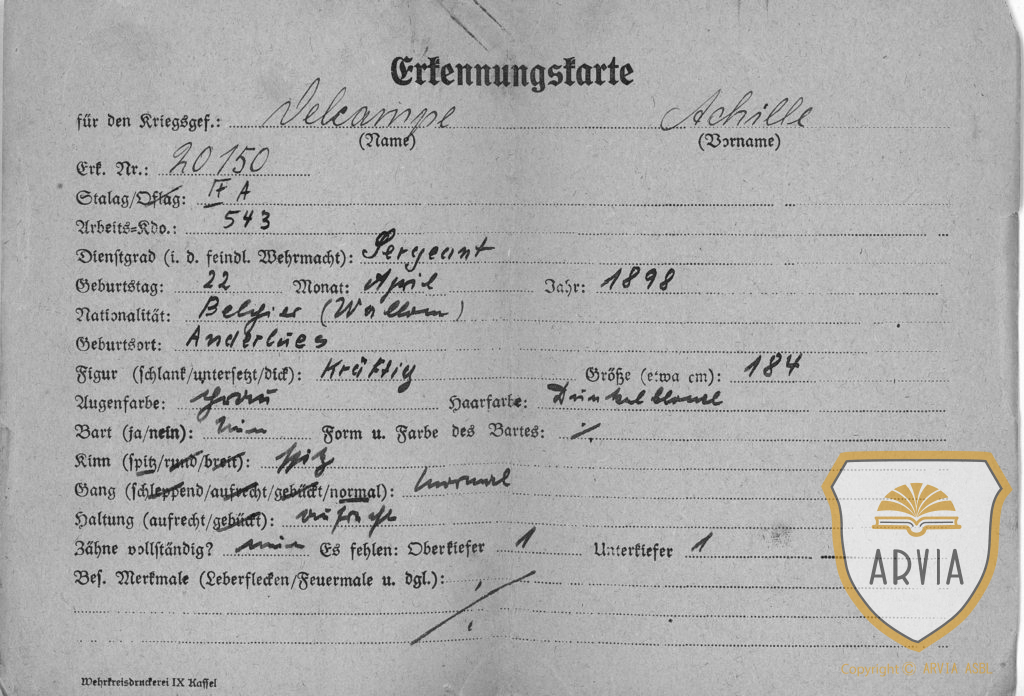 Erkennungskarte
für den Kriegsgef.: Delcampe Achille
(Name) (Vorname)
Erk. Nr.: 20150
Stalag/Oflag: IX A
Arbeits=Kdo.: 543
Dienstgrad (i. d. feindl. Wehrmacht): Sergeant
Geburtstag: 22 Monat: April Jahr: 1898
Nationalität: Belgier (Wallone)
Geburtsort: Anderlues
Figur (schlank/untersetzt/dick): Kräftig Größe (etwa cm): 184
Augenfarbe: Grau Haarfarbe: Dunkelblond
Bart (ja/nein): nein Form u. Farbe des Bartes: /.
Kinn (spitz/rund/breit): spitz
Gang (schleppend/aufrecht/gebückt/normal): normal
Haltung (aufrecht/gebückt): aufrecht
Zähne vollständig? nein Es fehlen: Oberkiefer 1 Unterkiefer 1
Bes. Merkmale (Leberflecken/Feuermale u. dgl.):
Wehrkreisdruckerei IX Kassel
ARVIA
Copyright © ARVIA ASBL